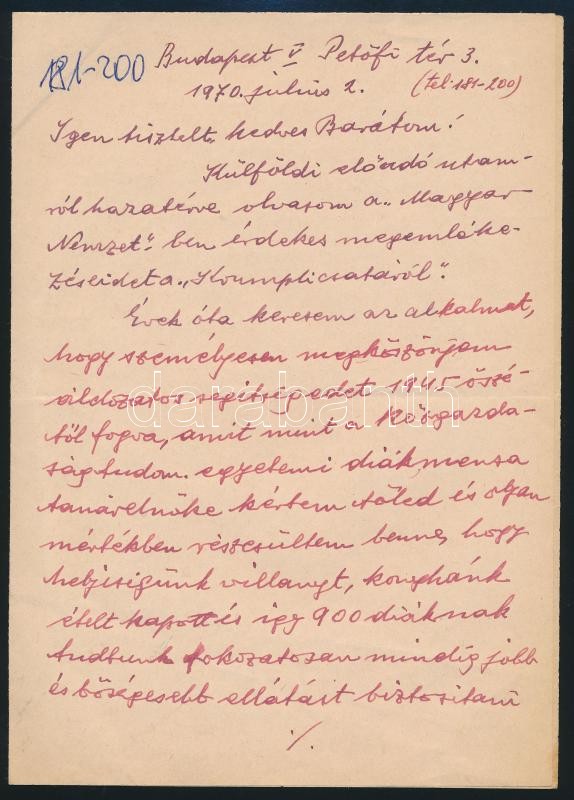 181-200 Budapest V Petőfi tér 3.
1970. július 2. (tel: 181-200)
Igen tisztelt, kedves Barátom!
Külföldi előadó utam-
ról hazatérve olvasom a „Magyar
Nemzet"-ben érdekes megemléke-
zéseidet a „Krumplicsatáról".
Évek óta keresem az alkalmat,
hogy személyesen megköszönjem
áldozatos segítségedet 1945 őszé-
től fogva, amit mint a Közgazda-
ságtudom. egyetemi diákmensa
tanárelnöke kértem tőled és olyan
mértékben részesültem benne, hogy
helyiségünk villanyt, konyhánk
ételt kapott és így 900 diáknak
tudtunk fokozatosan mindig jobb
és bőségesebb ellátást biztosítani
./.
darabanth